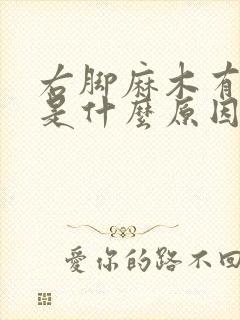 右脚麻木有
是什麼原因
愛你的路不回